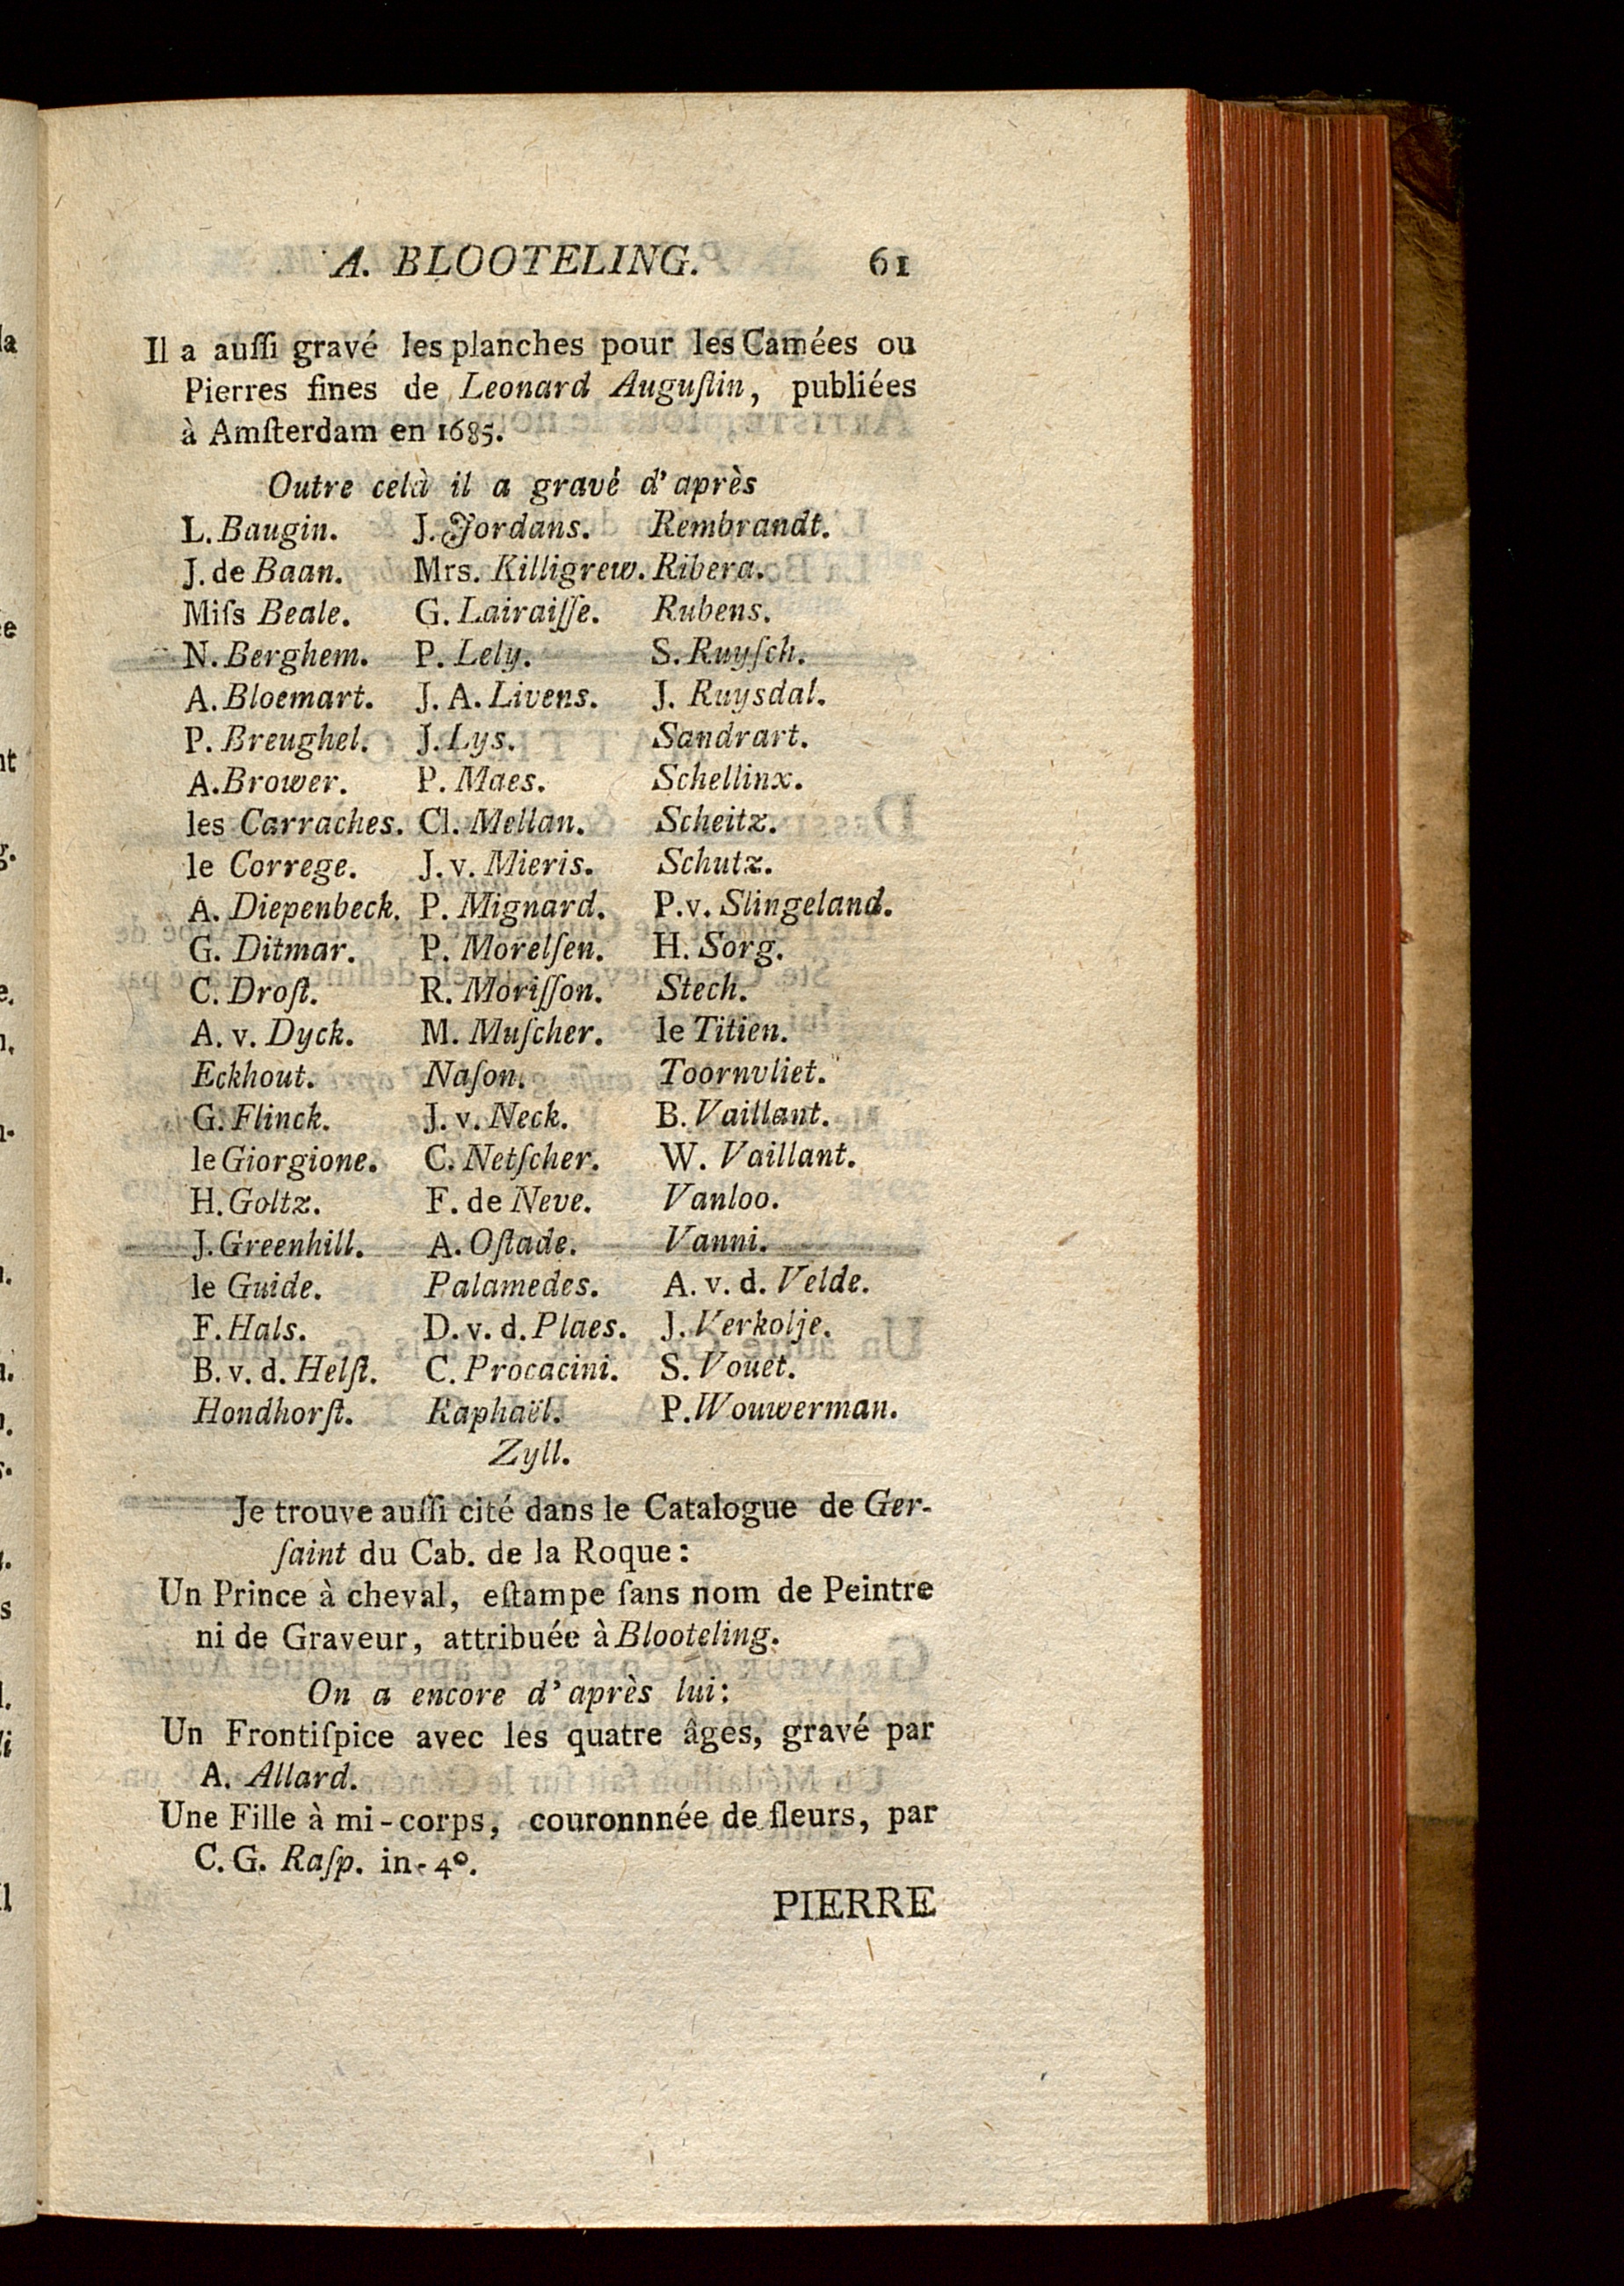 A. BLOOTELING. 61
Il a auſſi gravé les planches pour les Camées ou
Pierres fines de Leonard Auguſtin, publiées
à Amſterdam en 1685.
Outre celà il a gravé d'après
L. Baugin. J. Jordans. Rembrandt.
J. de Baan. Mrs. Killigrew. Ribera.
Miſs Beale. G. Lairaiſſe. Rubens.
N. Berghem. P. Lely. S. Ruyſch.
A. Bloemart. J. A. Livens. J. Ruysdal.
P. Breughel. J. Lys. Sandrart.
A. Brower. P. Maes. Schellinx.
les Carraches. Cl. Mellan. Scheitz.
le Correge. J. v. Mieris. Schutz.
A. Diepenbeck. P. Mignard. P. v. Slingeland.
G. Ditmar. P. Morelſen. H. Sorg.
C. Droſt. R. Moriſſon. Stech.
A. v. Dyck. M. Muſcher. le Titien.
Eckhout. Naſon. Toornvliet.
G. Flinck. J. v. Neck. B. Vaillant.
le Giorgione. C. Netſcher. W. Vaillant.
H. Goltz. F. de Neve. Vanloo.
J. Greenhill. A. Oſtade. Vanni.
le Guide. Palamedes. A. v. d. Velde.
F. Hals. D. v. d. Plaes. J. Verkolje.
B. v. d. Helſt. C. Procacini. S. Vouet.
Hondhorſt. Raphaël. P. Wouwerman.
Zyll.
Je trouve auſſi cité dans le Catalogue de Ger-
ſaint du Cab. de la Roque:
Un Prince à cheval, eſtampe ſans nom de Peintre
ni de Graveur, attribuée à Blooteling.
On a encore d'après lui:
Un Frontiſpice avec les quatre âges, gravé par
A. Allard.
Une Fille à mi-corps, couronnnée de fleurs, par
C. G. Raſp. in-4º.
PIERRE